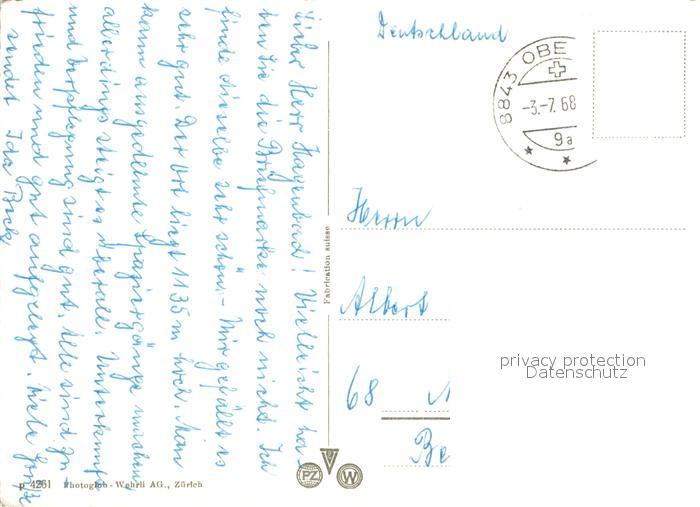 Lieber Herr Hagenbad! Vielleicht ha-
ben Sie die Briefmarke noch nicht. Ich
finde dieselbe sehr schön. - Mir gefällt es
sehr gut. Der Ort liegt 1135 m hoch. Man
kann ausgedehnte Spaziergänge machen,
allerdings steigt es überall. Unterkunft
und Verpflegung sind gut. Alle sind zu-
frieden und gut aufgelegt. Viele Grüße
sendet Ida Beck
Deutschland
8843 OBE
-3.-7.68
9a
Herrn
Albert
68
Be
Fabrication suisse
privacy protection
Datenschutz
PZ
W
p 4261 Photoglob-Wehrli AG., Zürich